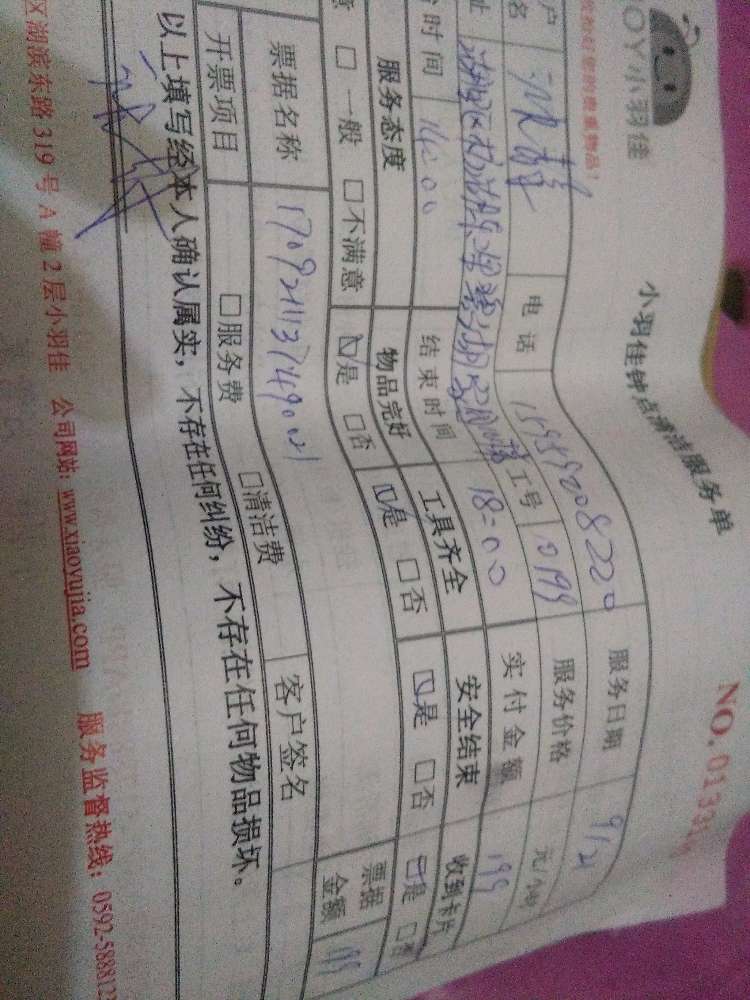 JOY小羽佳
贵重物品!
小羽佳钟点清洁服务单
NO. 0133
户名 电话 15959208220 服务日期 9/21
址 工号 0199 服务价格 元/
时间 14:00 结束时间 18:00 实付金额 199
服务态度 物品完好 工具齐全 安全结束 收到卡片
意 □一般 □不满意 ☑是 □否 ☑是 □否 ☑是 □否 ☑是 □否
票据名称 票据金额 199
开票项目 □服务费 □清洁费 客户签名
以上填写经本人确认属实，不存在任何纠纷，不存在任何物品损坏。
区湖滨东路 319 号 A 幢 2 层小羽佳 公司网站: www.xiaoyujia.com 服务监督热线: 0592-588812